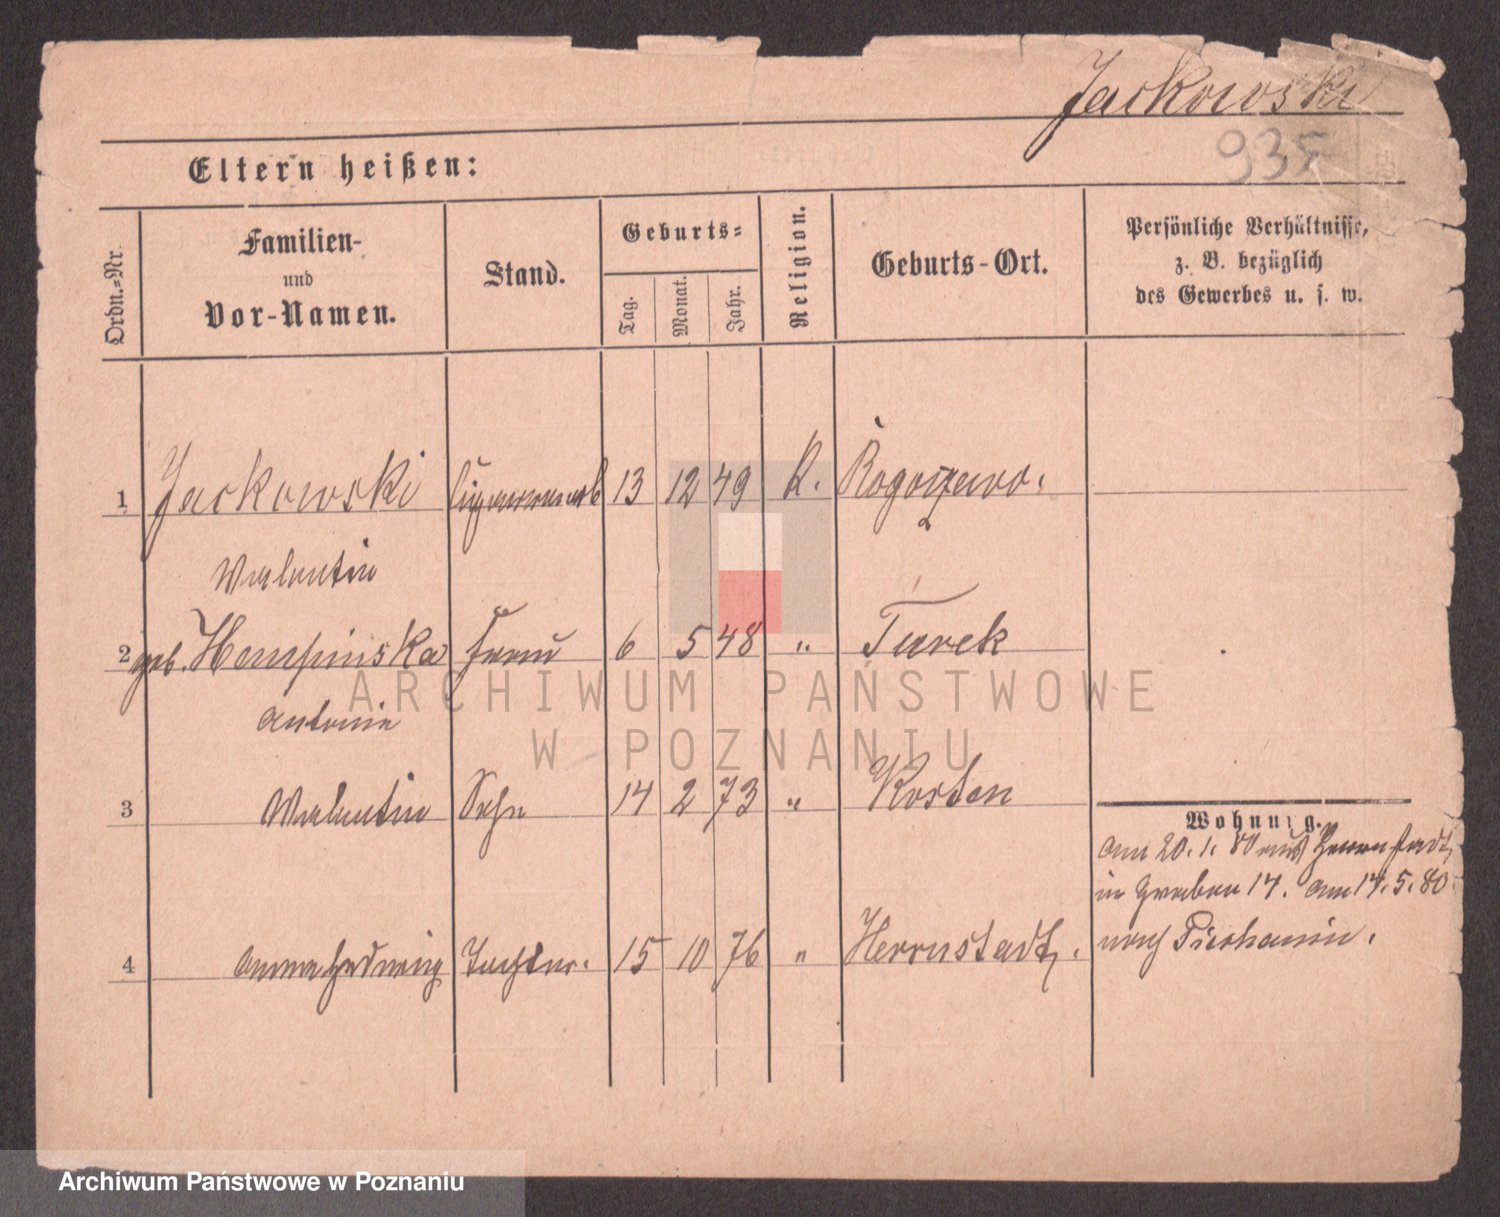 Jackowski
935
Eltern heißen:
Ordn.=Nr.
Familien-
und
Vor-Namen.
Stand.
Geburts=
Tag.
Monat.
Jahr.
Religion.
Geburts-Ort.
Persönliche Verhältnisse,
z. B. bezüglich
des Gewerbes u. s. w.
1 Jackowski 13 12 49 K.
Valentin
2 geb. Hempinska Frau 6 5 48 " Turek
Antonie
3 Valentin Sohn 14 2 73 " Kosten
Wohnung.
am 20.1.80 aus Herrnstadt,
in Graben 17. am 17.5.80
4 Anna Hedwig Tochter. 15 10 76 " Herrnstadt.
nach
ARCHIWUM PAŃSTWOWE
W POZNANIU
Archiwum Państwowe w Poznaniu